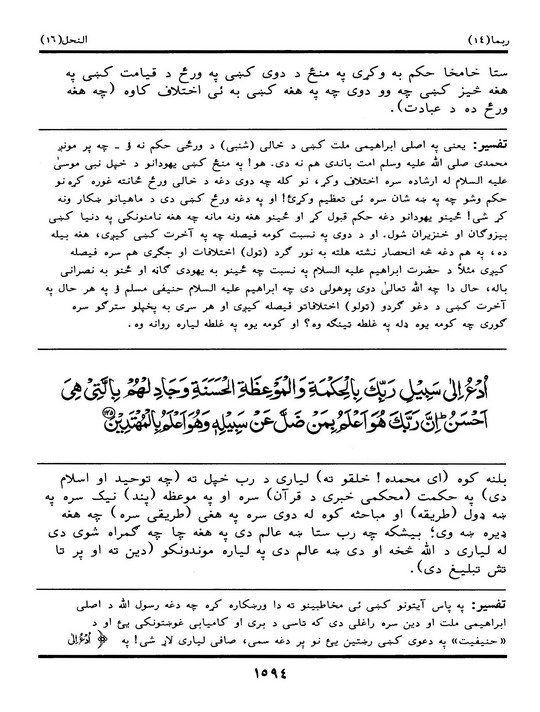 ربما(١٤)
النحل(١٦)
ستا خامخا حکم به وکړي په منځ د دوی کښی په ورځ د قیامت کښی په
هغه څیز کښی چه وو دوی چه په هغه کښی به ئی اختلاف کاوه (چه هغه
ورځ ده د عبادت).
تفسیر: یعنی په اصلی ابراهیمی ملت کښی د خالی (شنبی) د ورځی حکم نه ؤ ـ چه پر مونږ
محمدی صلی الله علیه وسلم امت باندی هم نه دی. هو! په منځ کښی یهودانو د خپل نبی موسیٰ
علیه السلام له ارشاده سره اختلاف وکړ، نو کله چه دوی دغه د خالی ورځ ځانته غوره کړه نو
حکم وشو چه په ښه شان سره ئی تعظیم وکړئ! او په دغه ورځ کښی دی د ماهیانو ښکار ونه
کړ شی! ځینو یهودانو دغه حکم قبول کړ او ځینو هغه ونه مانه چه هغه نامنونکی په دنیا کښی
بیزوګان او خنزیران شول. او د دوی په نسبت کومه فیصله چه په آخرت کښی کیږی، هغه بیله
ده، په هم دغه شه انحصار نشته هلته به نور ګرد (ټول) اختلافات او جګړی هم سره فیصله
کیږی مثلاً د حضرت ابراهیم علیه السلام په نسبت چه ځینو به یهودی ګاڼه او ځنو به نصرانی
باله، حال دا چه الله تعالیٰ دوی پوهولی دی چه ابراهیم علیه السلام حنیفی مسلم ؤ په هر حال په
آخرت کښی د دغو ګردو (ټولو) اختلافاتو فیصله کیږی او هر سړی به پخپلو سترګو سره
ګوری چه کومه یوه ډله په غلطه تینګه وه؟ او کومه یوه په غلطه لیاره روانه وه.
اُدْعُ اِلٰى سَبِيْلِ رَبِّكَ بِالْحِكْمَةِ وَالْمَوْعِظَةِ الْحَسَنَةِ وَجَادِلْهُمْ بِالَّتِيْ هِيَ
اَحْسَنُ ؕ اِنَّ رَبَّكَ هُوَ اَعْلَمُ بِمَنْ ضَلَّ عَنْ سَبِيْلِهٖ وَهُوَ اَعْلَمُ بِالْمُهْتَدِيْنَ ﴿١٢٥﴾
بلنه کوه (ای محمده! خلقو ته) لیاری د رب خپل ته (چه توحید او اسلام
دی) په حکمت (محکمی خبری د قرآن) سره او په موعظه (پند) نیک سره په
ښه ډول (طریقه) او مباحثه کوه له دوی سره په هغی (طریقی سره) چه هغه
ډیره ښه وی؛ بیشکه چه رب ستا ښه عالم دی په هغه چا چه ګمراه شوی دی
له لیاری د الله څخه او دی ښه عالم دی په لیاره موندونکو (دین ته او پر تا
تش تبلیغ دی).
تفسیر: په پاس آیتونو کښی ئی مخاطبینو ته دا ورښکاره کړه چه دغه رسول الله د اصلی
ابراهیمی ملت او دین سره راغلی دی که تاسی د بری او کامیابی غوښتونکی یئ او د
«حنیفیت» په دعوی کښی رښتین یئ نو پر دغه سمی، صافی لیاری لاړ شی! په ﴿ اُدْعُ اِلٰى
١٥٩٤